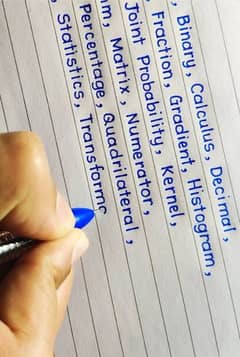 , Binary, Calculus, Decimal,
, Fraction, Gradient, Histogram,
Joint Probability, Kernel,
m, Matrix, Numerator,
Percentage, Quadrilateral,
, Statistics, Transform